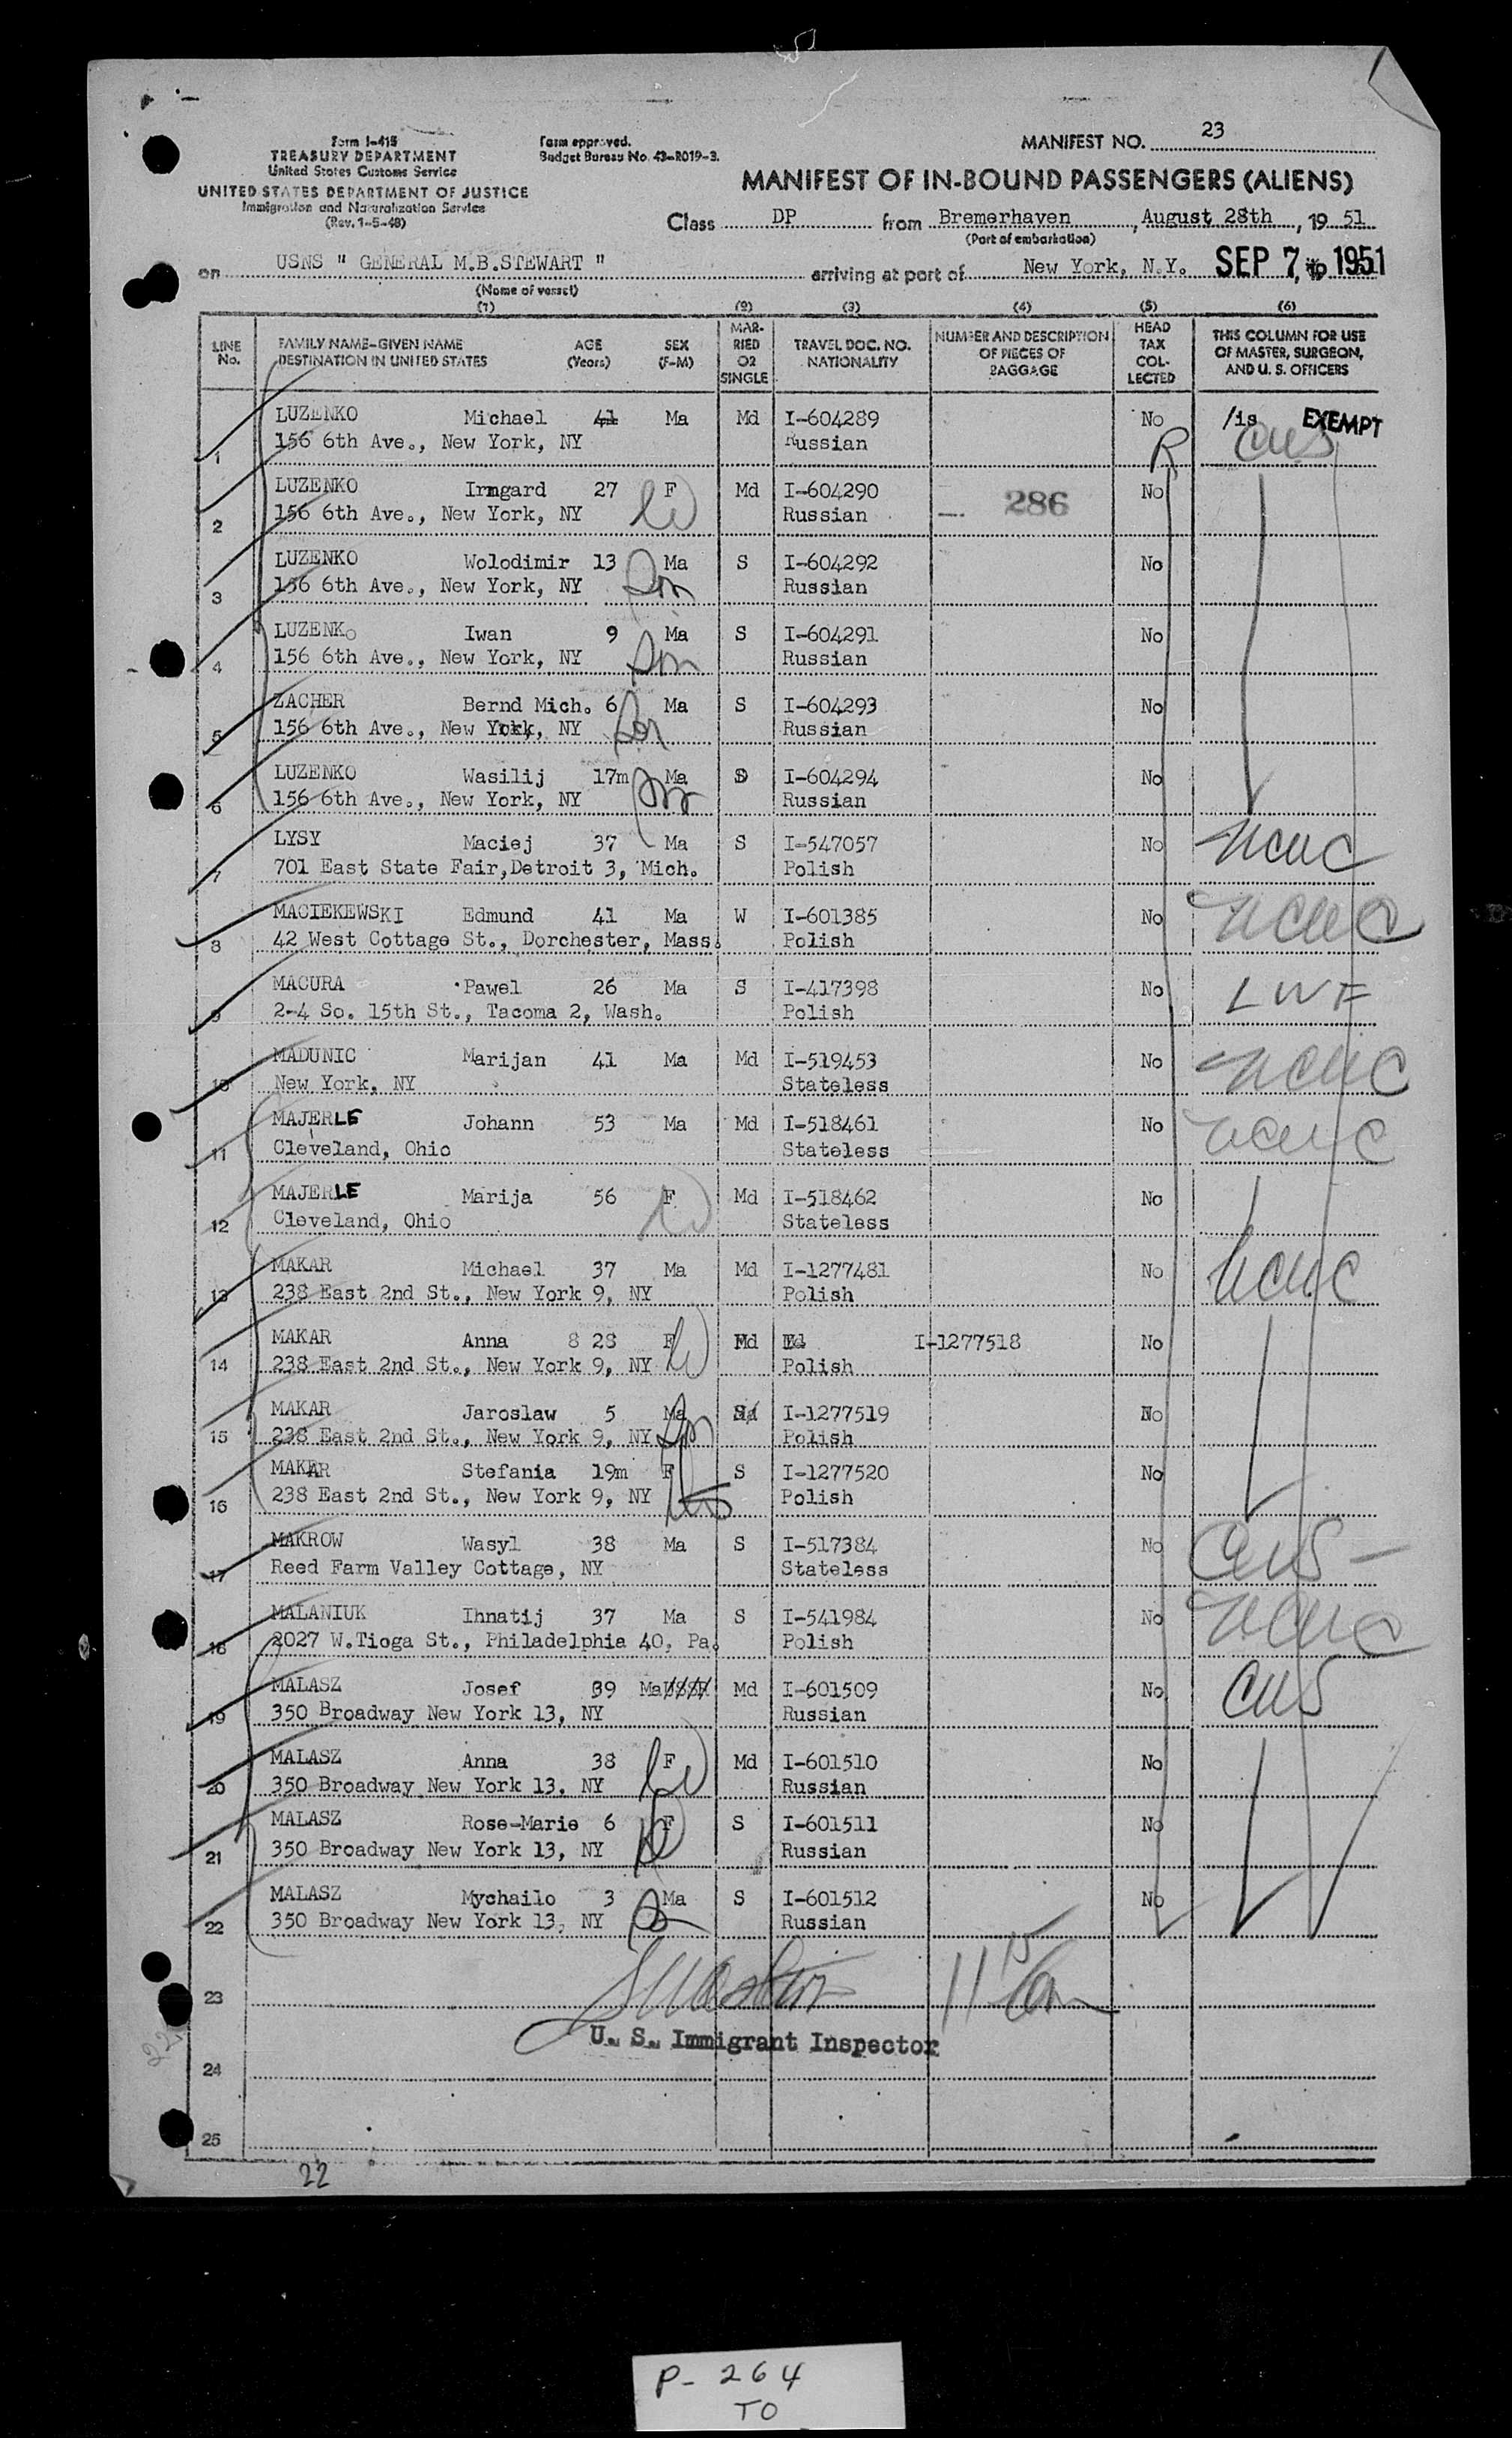 Form I-415
TREASURY DEPARTMENT
United States Customs Service
UNITED STATES DEPARTMENT OF JUSTICE
Immigration and Naturalization Service
(Rev. 1-5-48)
Form approved.
Budget Bureau No. 43-R019-3.
MANIFEST NO. 23
MANIFEST OF IN-BOUND PASSENGERS (ALIENS)
Class DP from Bremerhaven, August 28th, 1951
(Port of embarkation)
on USNS " GENERAL M.B.STEWART " arriving at port of New York, N.Y. SEP 7, 1951
(Name of vessel)
(1) (2) (3) (4) (5) (6)
LINE No. FAMILY NAME-GIVEN NAME DESTINATION IN UNITED STATES AGE (Years) SEX (F-M) MARRIED OR SINGLE TRAVEL DOC. NO. NATIONALITY NUMBER AND DESCRIPTION OF PIECES OF BAGGAGE HEAD TAX COLLECTED THIS COLUMN FOR USE OF MASTER, SURGEON, AND U. S. OFFICERS
LUZENKO Michael 41 Ma Md I-604289 No /is EXEMPT
1 156 6th Ave., New York, NY Russian R CWS
LUZENKO Irmgard 27 F Md I-604290 No
2 156 6th Ave., New York, NY W Russian 286
LUZENKO Wolodimir 13 Ma S I-604292 No
3 156 6th Ave., New York, NY Son Russian
LUZENKO Iwan 9 Ma S I-604291 No
4 156 6th Ave., New York, NY Son Russian
ZACHER Bernd Mich. 6 Ma S I-604293 No
5 156 6th Ave., New York, NY Son Russian
LUZENKO Wasilij 17m Ma S I-604294 No
6 156 6th Ave., New York, NY Son Russian
LYSY Maciej 37 Ma S I-547057 No NCWC
7 701 East State Fair,Detroit 3, Mich. Polish
MACIEKEWSKI Edmund 41 Ma W I-601385 No NCWC
8 42 West Cottage St., Dorchester, Mass. Polish
MACURA Pawel 26 Ma S I-417398 No LWF
9 2-4 So. 15th St., Tacoma 2, Wash. Polish
MADUNIC Marijan 41 Ma Md I-519453 No NCWC
10 New York, NY Stateless
MAJERLE Johann 53 Ma Md I-518461 No NCWC
11 Cleveland, Ohio Stateless
MAJERLE Marija 56 F Md I-518462 No
12 Cleveland, Ohio W Stateless
MAKAR Michael 37 Ma Md I-1277481 No NCWC
13 238 East 2nd St., New York 9, NY Polish
MAKAR Anna 8 28 F Md I-1277518 No
14 238 East 2nd St., New York 9, NY W Polish
MAKAR Jaroslaw 5 Ma S I-1277519 No
15 238 East 2nd St., New York 9, NY Son Polish
MAKAR Stefania 19m F S I-1277520 No
16 238 East 2nd St., New York 9, NY Polish
MAKROW Wasyl 38 Ma S I-517384 No CWS -
17 Reed Farm Valley Cottage, NY Stateless
MALANIUK Ihnatij 37 Ma S I-541984 No NCWC
18 2027 W.Tioga St., Philadelphia 40, Pa. Polish
MALASZ Josef 39 Ma Md I-601509 No CWS
19 350 Broadway New York 13, NY Russian
MALASZ Anna 38 F Md I-601510 No
20 350 Broadway New York 13, NY W Russian
MALASZ Rose-Marie 6 F S I-601511 No
21 350 Broadway New York 13, NY D Russian
MALASZ Mychailo 3 Ma S I-601512 No
22 350 Broadway New York 13, NY Russian
23 11 15 am
U. S. Immigrant Inspector
24
25
22
P- 264
TO